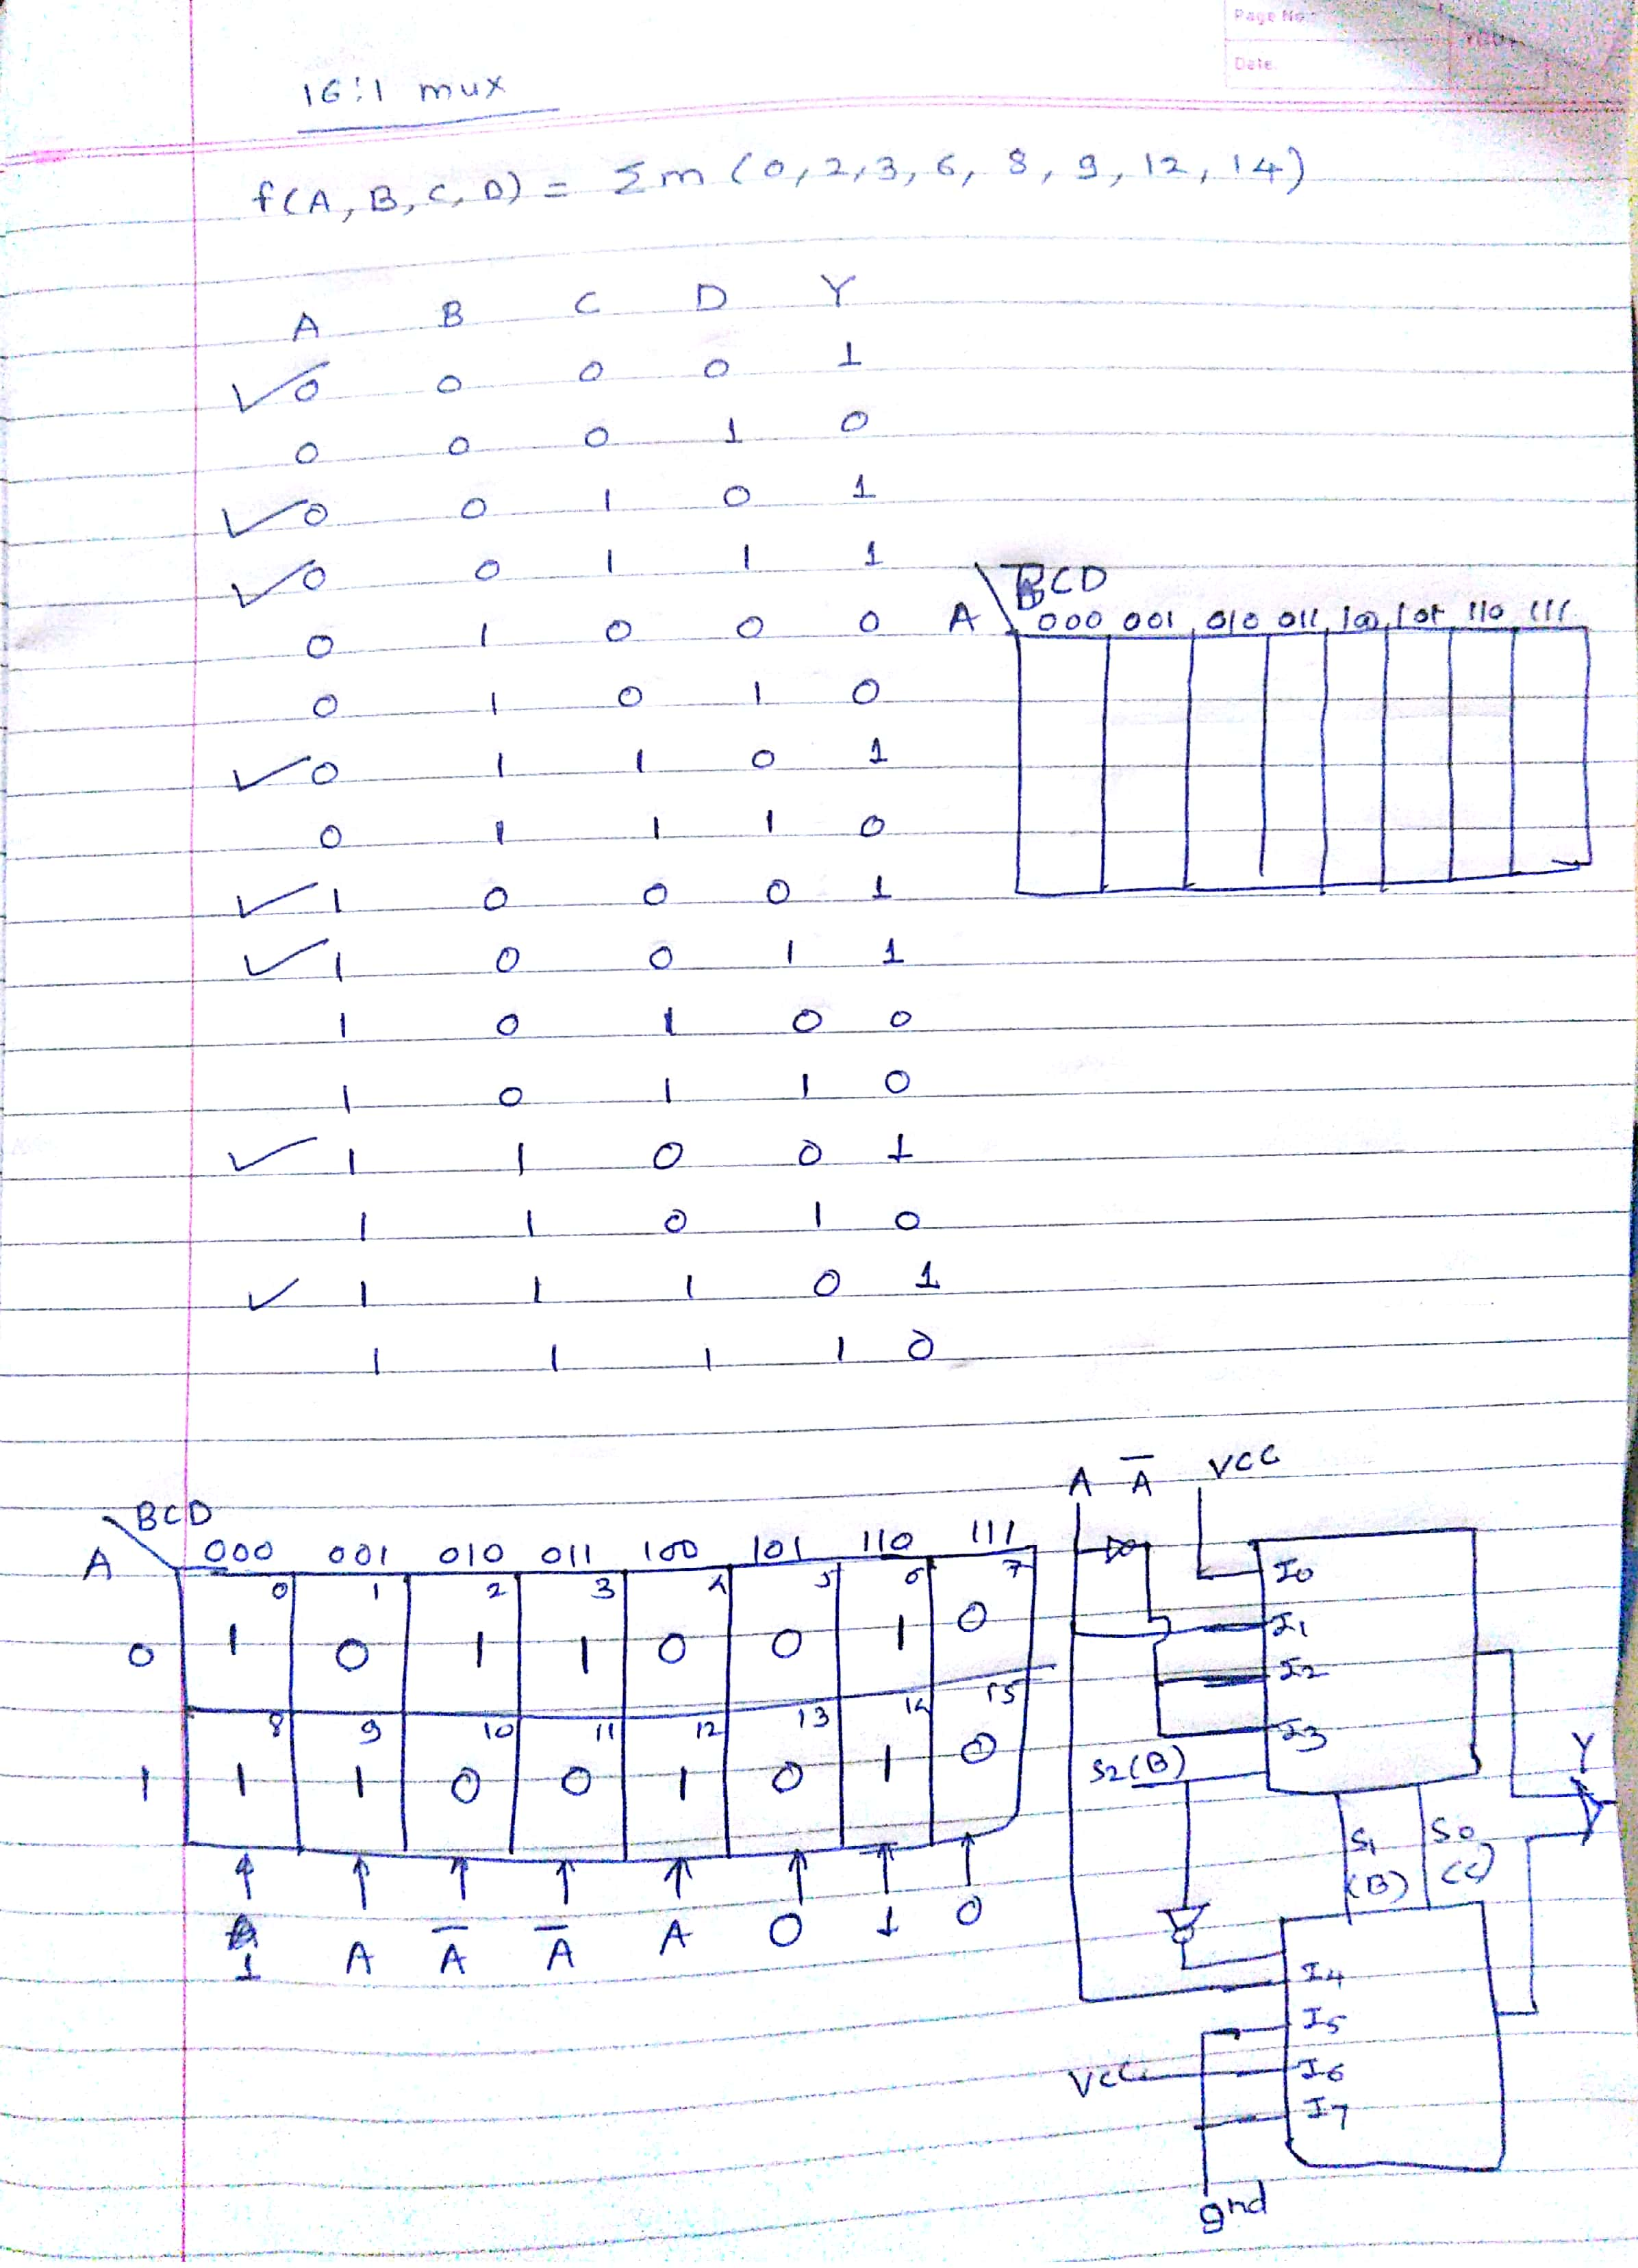 Page No:
YOUVA
Date
16:1 mux
f(A, B, C, D) = Σm (0, 2, 3, 6, 8, 9, 12, 14)
A B C D Y
0 0 0 0 1
0 0 0 1 0
0 0 1 0 1
0 0 1 1 1
0 1 0 0 0
0 1 0 1 0
0 1 1 0 1
0 1 1 1 0
1 0 0 0 1
1 0 0 1 1
1 0 1 0 0
1 0 1 1 0
1 1 0 0 1
1 1 0 1 0
1 1 1 0 1
1 1 1 1 0
BCD
A 000 001 010 011 100 101 110 111
BCD
A 000 001 010 011 100 101 110 111
0 1 2 3 4 5 6 7
0 1 0 1 1 0 0 1 0
8 9 10 11 12 13 14 15
1 1 1 0 0 1 0 1 0
1 A A̅ A̅ A 0 1 0
A A̅ VCC
I0
I1
I2
I3
S2(B)
Y
S1 S0
(B) (C)
I4
I5
VCC I6
I7
gnd